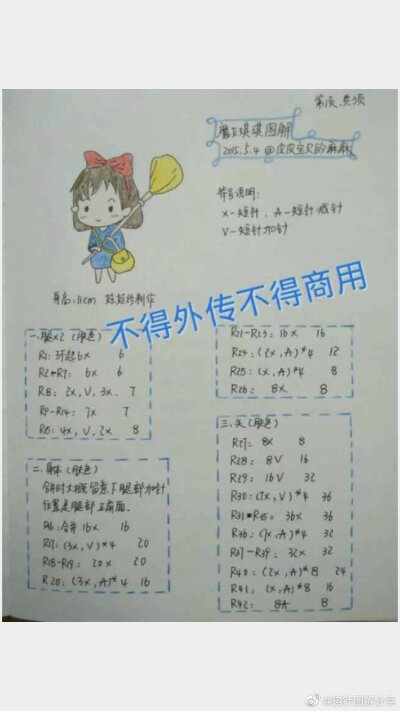 第1页,共3页
魔女琪琪图解
2015.5.4 @皮皮宝贝的麻麻
符号说明:
X-短针、A-短针减针
V-短针加针
身高:11cm 娃娃纺制作
不得外传不得商用
一.腿x2 (肤色)
R1: 环起6x 6
R2-R7: 6x 6
R8: 2x, V, 3x. 7
R9-R14: 7x 7
R15: 4x, V, 2x 8
二.身体(肤色)
合并时大概留意下腿部加针
位置是腿部正前面.
R16: 合并 16x 16
R17: (3x, V)*4 20
R18-R19: 20x 20
R20: (3x, A)*4 16
R21-R23: 16x 16
R24: (2x, A)*4 12
R25: (x, A)*4 8
R26: 8x 8
三.头(肤色)
R27: 8x 8
R28: 8V 16
R29: 16V 32
R30: (7x, V)*4 36
R31-R35: 36x 36
R36: (7x, A)*4 32
R37-R39: 32x 32
R40: (2x, A)*8 24
R41: (x, A)*8 16
R42: 8A 8
@钩针图解分享